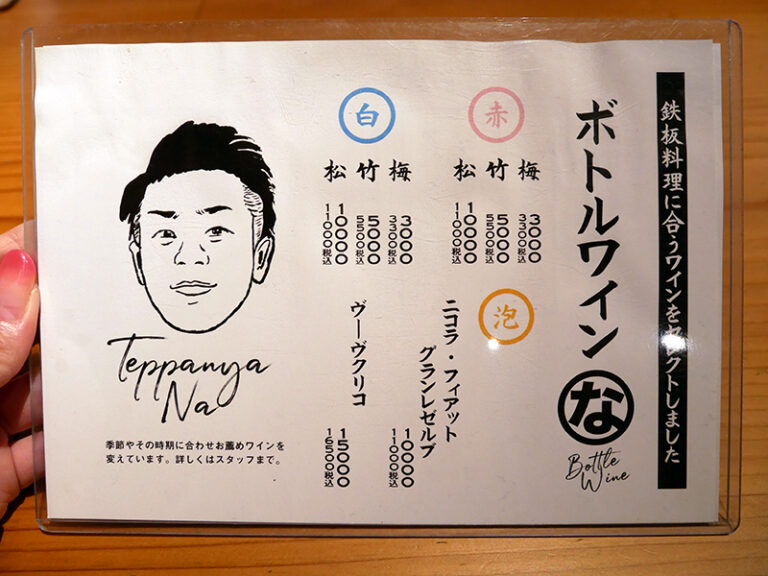 鉄板料理に合うワインをセレクトしました
ボトルワイン
な
Bottle
Wine
赤
梅
3000
3300税込
竹
5000
5500税込
松
10000
11000税込
白
梅
3000
3300税込
竹
5000
5500税込
松
10000
11000税込
泡
ニコラ・フィアット
グランレゼルブ
10000
11000税込
ヴーヴクリコ
15000
16500税込
Teppanya
Na
季節やその時期に合わせお薦めワインを
変えています。詳しくはスタッフまで。